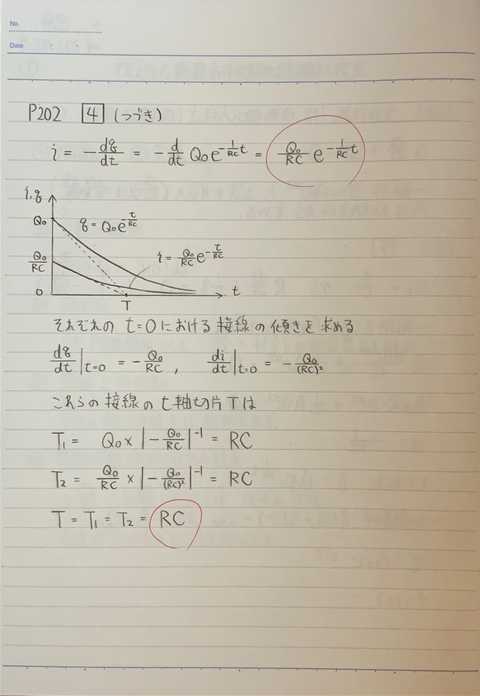 No.
Date
P202 4 (つづき)
i = -dq/dt = -d/dt Q₀e^{-1/RC t} = Q₀/RC e^{-1/RC t}
i,q
Q₀
q = Q₀e^{-t/RC}
Q₀/RC
i = Q₀/RC e^{-t/RC}
0
T
t
それぞれの t=0 における接線の傾きを求める
dq/dt|t=0 = -Q₀/RC , di/dt|t=0 = -Q₀/(RC)²
これらの接線の t軸切片 T は
T₁ = Q₀ × |-Q₀/RC|⁻¹ = RC
T₂ = Q₀/RC × |-Q₀/(RC)²|⁻¹ = RC
T = T₁ = T₂ = RC